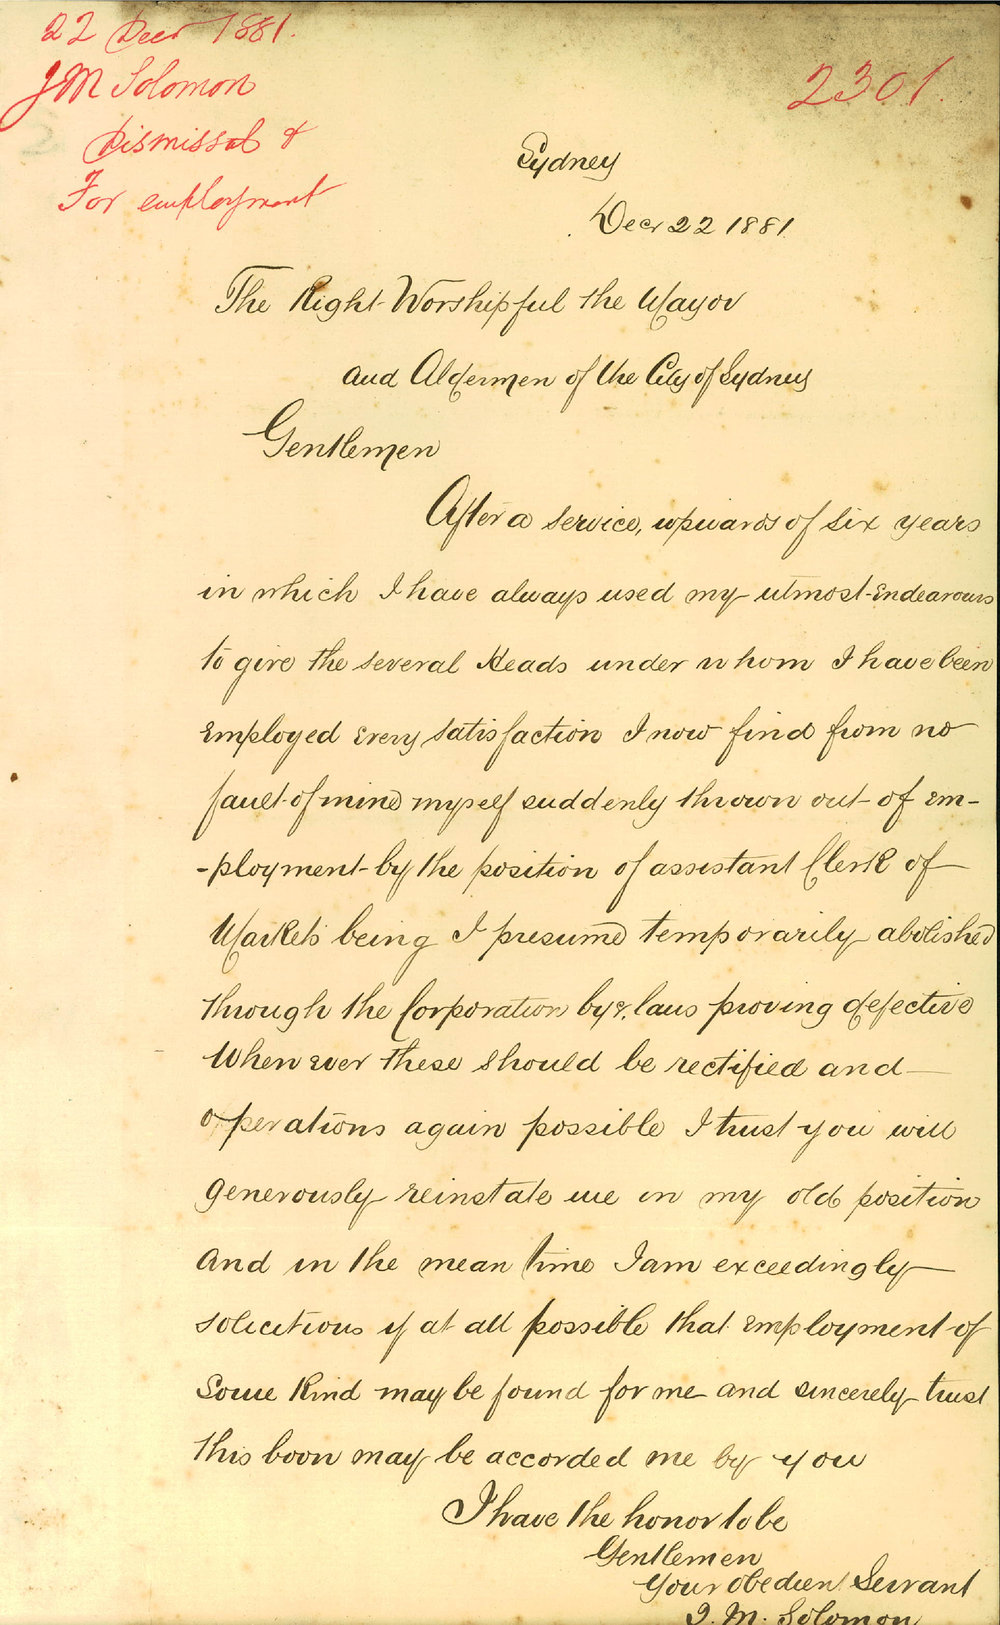 22 Decr 1881.
JM Solomon
Dismissal &
For employment
2301.
Sydney
Decr 22 1881
The Right Worshipful the Mayor
and Aldermen of the City of Sydney
Gentlemen
After a service, upwards of six years
in which I have always used my utmost Endeavours
to give the several Heads under whom I have been
Employed Every satisfaction I now find from no
fault of mine myself suddenly thrown out of Em-
-ployment by the position of assistant Clerk of
Markets being I presume temporarily abolished
through the Corporation bye laws proving defective
When ever these should be rectified and
operations again possible I trust you will
generously reinstate me in my old position
and in the mean time I am exceedingly
solicitious if at all possible that Employment of
Some Kind may be found for me and sincerely trust
this boon may be accorded me by you
I have the honor to be
Gentlemen
Your obedient Servant
J. M. Solomon